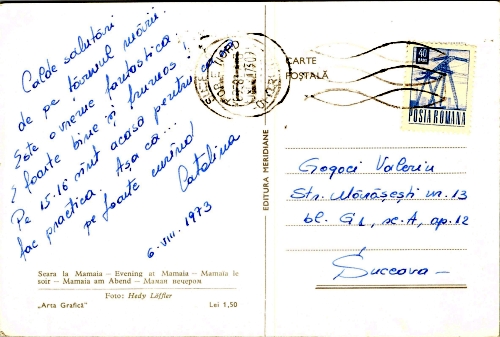 Calde salutări
de pe țărmul mării.
Este o vreme fantastică.
E foarte bine și frumos!
Pe 15-16 sînt acasă pentru că
fac practica. Așa că...
pe foarte curînd
Catalina
6.VIII.1973
Seara la Mamaia — Evening at Mamaia — Mamaia le
soir — Mamaia am Abend — Мамая вечером
Foto: Hedy Löffler
„Arta Grafică" Lei 1,50
EDITURA MERIDIANE
CARTE
POȘTALĂ
40
BANI
POSTA ROMANA
Gogoci Valeriu
Str. Mănăsești nr. 13
bl. G1, sc. A, ap. 12
Suceava